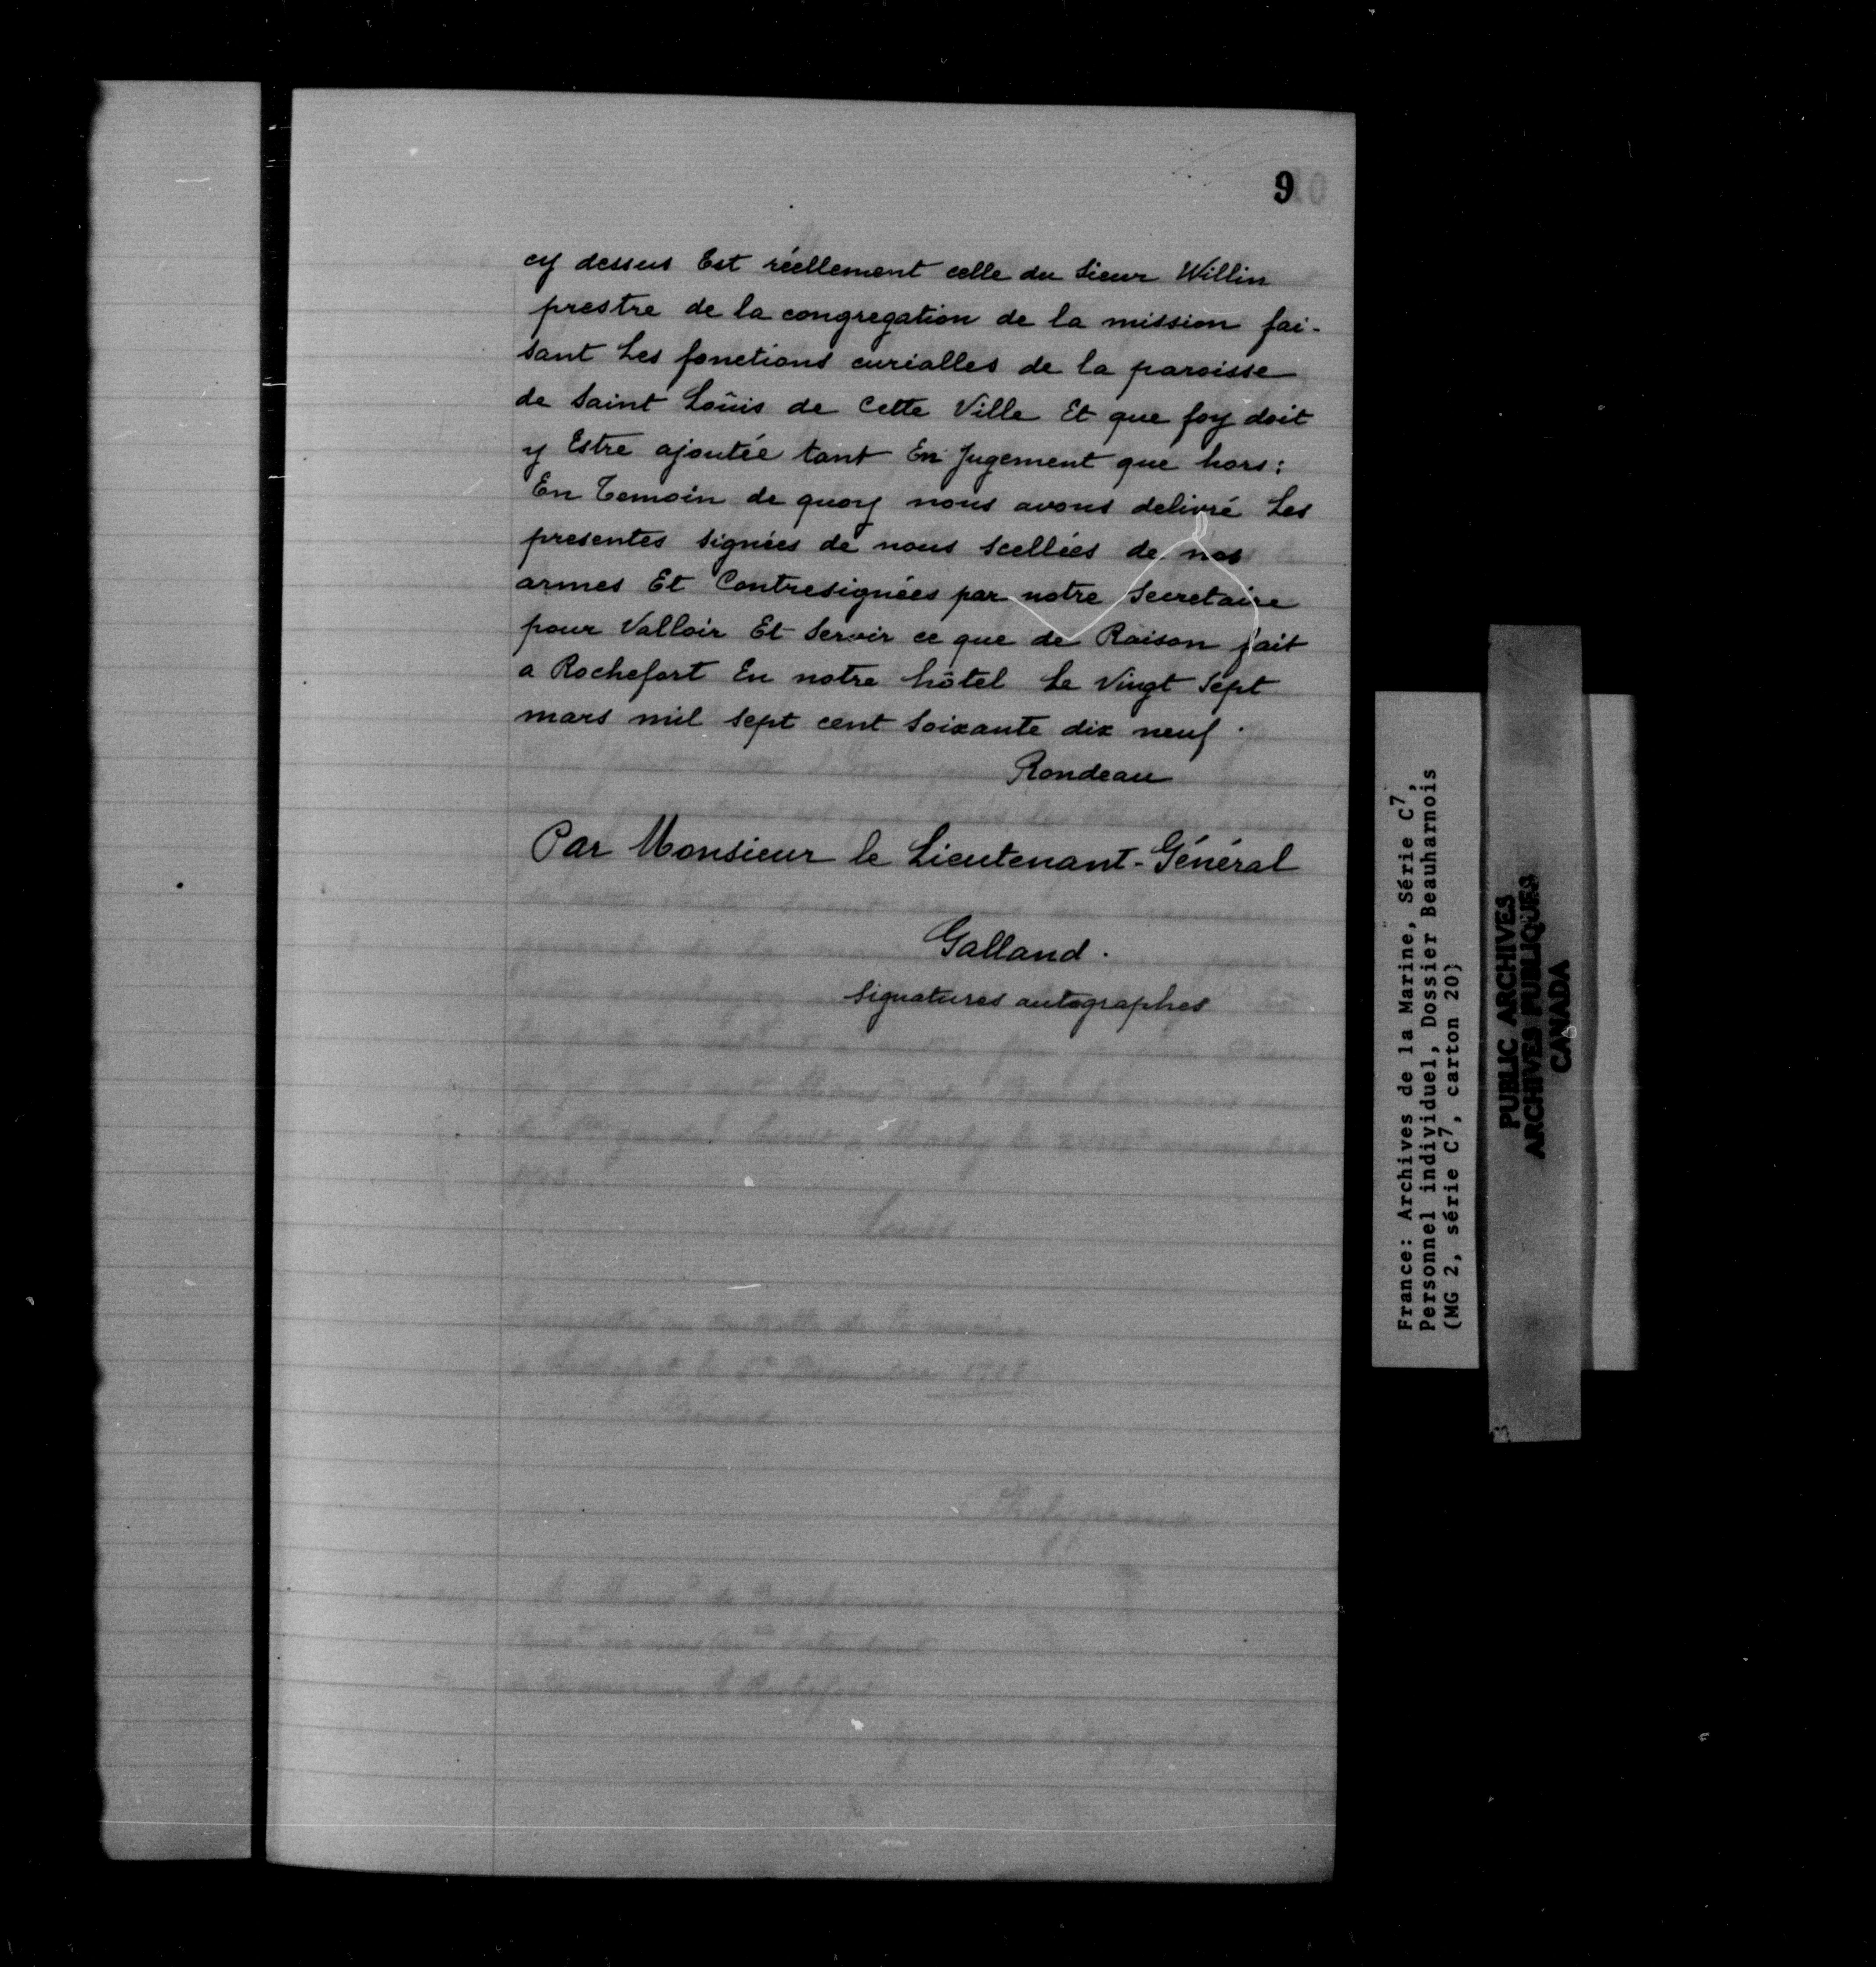 9
cy dessus Est réellement celle du Sieur Willin
prestre de la congregation de la mission fai-
sant Les fonctions curialles de la paroisse
de Saint Loûis de Cette Ville Et que foy doit
y Estre ajoutée tant En Jugement que hors :
En Temoin de quoy nous avons delivré Les
presentes signées de nous scellées de nos
armes Et Contresignées par notre Secretaire
pour Valloir Et Servir ce que de Raison fait
a Rochefort En notre hôtel Le Vingt Sept
mars mil sept cent Soixante dix neuf.
Rondeau
Par Monsieur le Lieutenant-Général
Galland.
Signatures autographes
France: Archives de la Marine, Série C7,
Personnel individuel, Dossier Beauharnois
(MG 2, série C7, carton 20)
PUBLIC ARCHIVES
ARCHIVES PUBLIQUES
CANADA